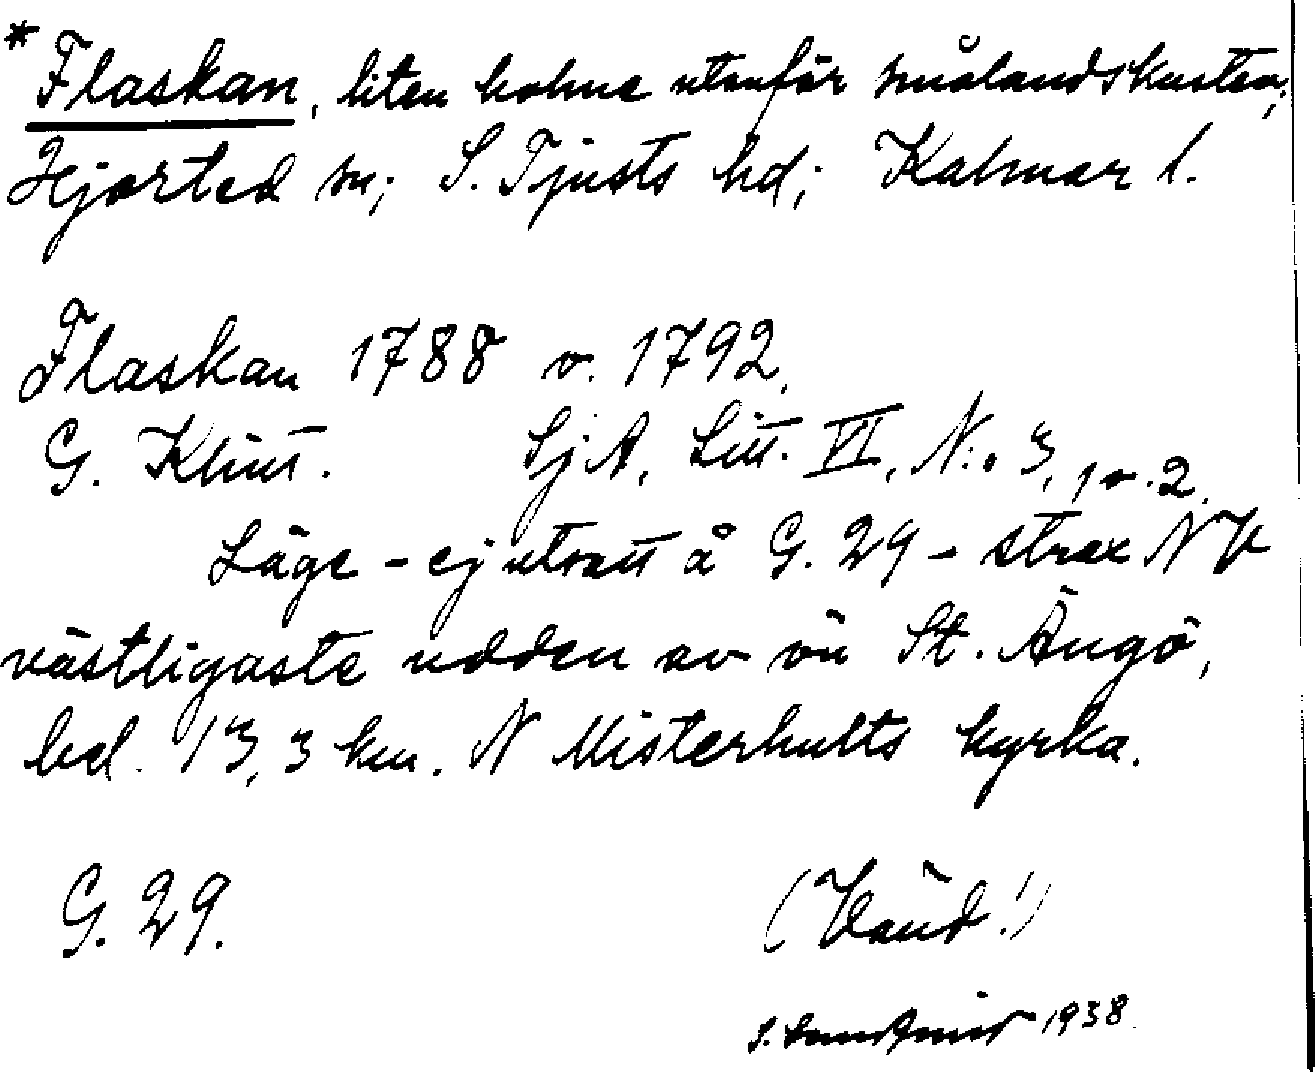 * Flaskan, liten holme utanför smålandskusten;
Hjorted sn; S. Tjusts hd; Kalmar l.
Flaskan 1788 o. 1792.
G. Klint. SjA, Litt. VI, N:o 3, 1 o. 2.
Läge - ej utsatt å G. 29 - strax NV
västligaste udden av ön St. Ängö,
bel. 13,3 km. N Misterhults kyrka.
G. 29. (Vänd!)
1938